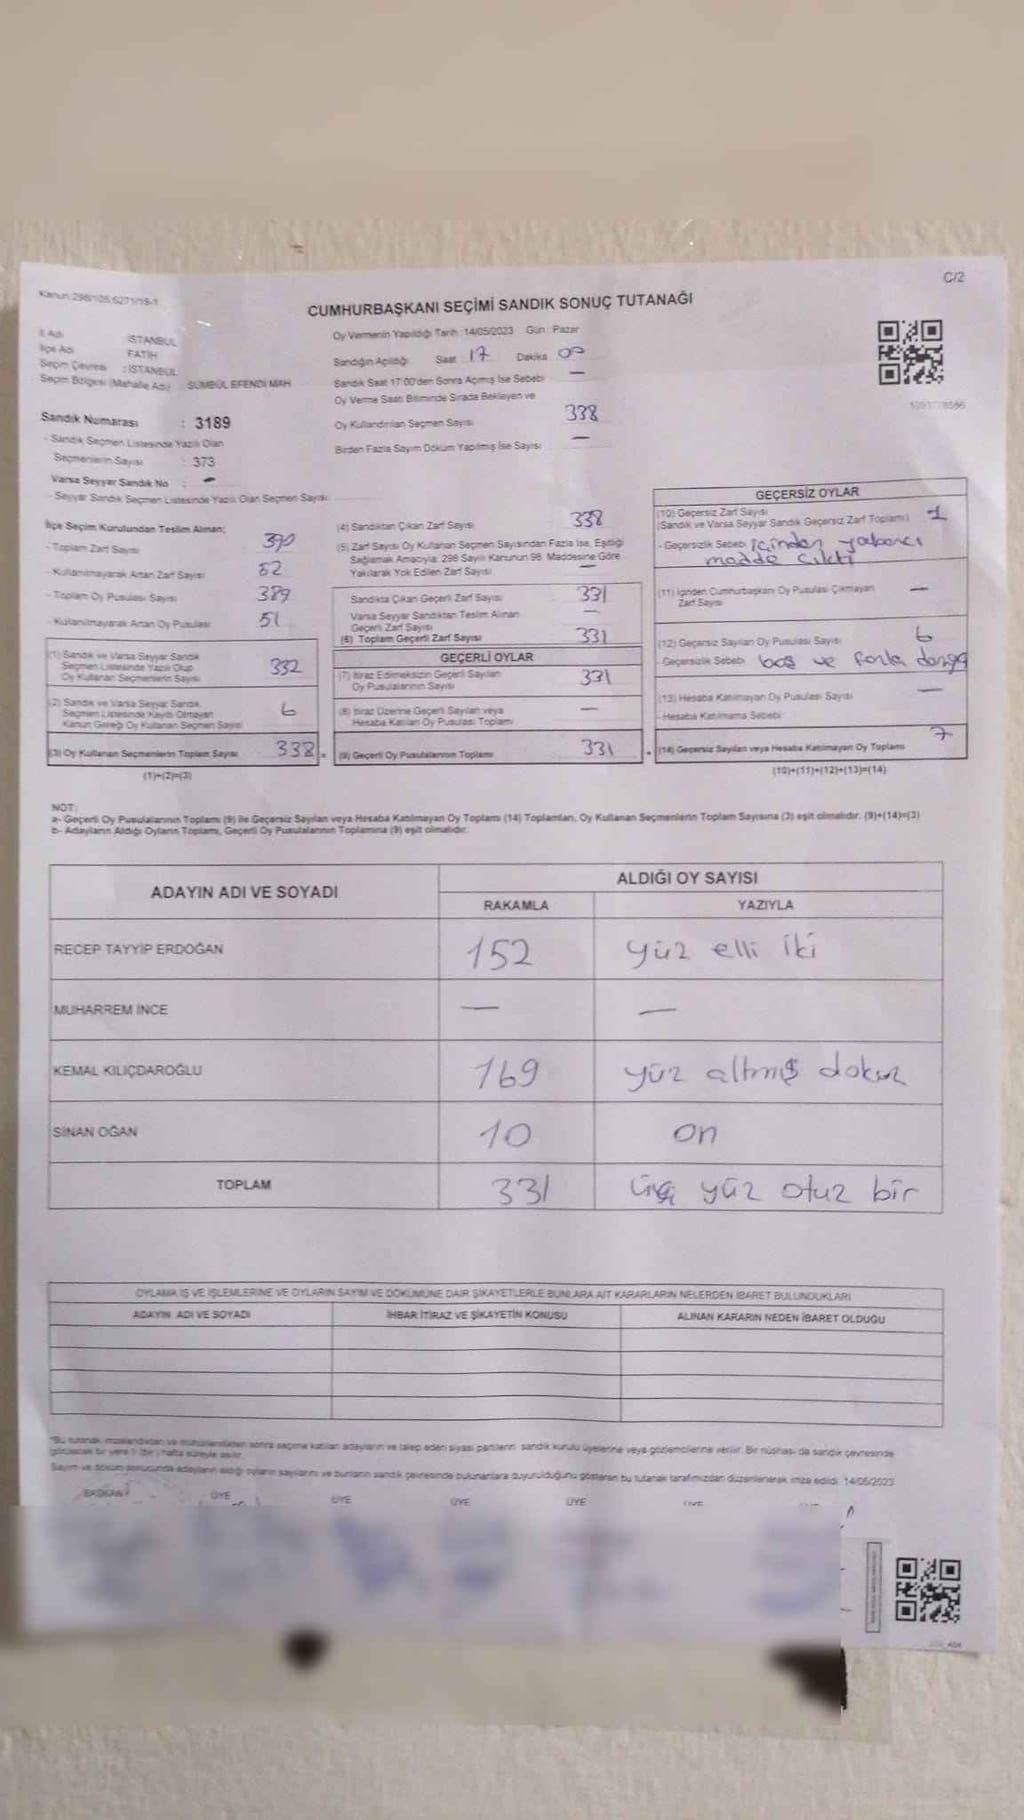 Kanun 298/105,6271/18-1
C/2
CUMHURBAŞKANI SEÇİMİ SANDIK SONUÇ TUTANAĞI
İl Adı İSTANBUL
İlçe Adı FATİH
Seçim Çevresi : İSTANBUL
Seçim Bölgesi (Mahalle Adı) SÜMBÜL EFENDİ MAH
Oy Vermenin Yapıldığı Tarih :14/05/2023 Gün : Pazar
Sandığın Açıldığı Saat 17 Dakika 00
Sandık Saat 17:00'den Sonra Açımış İse Sebebi —
Oy Verme Saati Bitiminde Sırada Bekleyen ve
Oy Kullandırılan Seçmen Sayısı 338
Birden Fazla Sayım Döküm Yapılmış İse Sayısı —
Sandık Numarası : 3189
- Sandık Seçmen Listesinde Yazılı Olan
Seçmenlerin Sayısı : 373
Varsa Seyyar Sandık No : —
- Seyyar Sandık Seçmen Listesinde Yazılı Olan Seçmen Sayısı
İlçe Seçim Kurulundan Teslim Alınan;
- Toplam Zarf Sayısı 390
- Kullanılmayarak Artan Zarf Sayısı 52
- Toplam Oy Pusulası Sayısı 389
- Kullanılmayarak Artan Oy Pusulası 51
(1) Sandık ve Varsa Seyyar Sandık
Seçmen Listesinde Yazılı Olup
Oy Kullanan Seçmenlerin Sayısı 332
(2) Sandık ve Varsa Seyyar Sandık
Seçmen Listesinde Kayıtlı Olmayan
Kanun Gereği Oy Kullanan Seçmen Sayısı 6
(3) Oy Kullanan Seçmenlerin Toplam Sayısı 338 =
(1)+(2)=(3)
(4) Sandıktan Çıkan Zarf Sayısı 338
(5) Zarf Sayısı Oy Kullanan Seçmen Sayısından Fazla İse, Eşitliği
Sağlamak Amacıyla; 298 Sayılı Kanunun 98. Maddesine Göre
Yakılarak Yok Edilen Zarf Sayısı —
Sandıkta Çıkan Geçerli Zarf Sayısı 331
Varsa Seyyar Sandıktan Teslim Alınan
Geçerli Zarf Sayısı —
(6) Toplam Geçerli Zarf Sayısı 331
GEÇERLİ OYLAR
(7) İtiraz Edilmeksizin Geçerli Sayılan
Oy Pusulalarının Sayısı 331
(8) İtiraz Üzerine Geçerli Sayılan veya
Hesaba Katılan Oy Pusulası Toplamı —
(9) Geçerli Oy Pusulalarının Toplamı 331 +
GEÇERSİZ OYLAR
(10) Geçersiz Zarf Sayısı
(Sandık ve Varsa Seyyar Sandık Geçersiz Zarf Toplamı) 1
- Geçersizlik Sebebi içinden yabancı
madde çıktı
(11) İçinden Cumhurbaşkanı Oy Pusulası Çıkmayan
Zarf Sayısı —
(12) Geçersiz Sayılan Oy Pusulası Sayısı 6
- Geçersizlik Sebebi boş ve fazla damga
(13) Hesaba Katılmayan Oy Pusulası Sayısı —
- Hesaba Katılmama Sebebi
(14) Geçersiz Sayılan veya Hesaba Katılmayan Oy Toplamı 7
(10)+(11)+(12)+(13)=(14)
NOT:
a- Geçerli Oy Pusulalarının Toplamı (9) ile Geçersiz Sayılan veya Hesaba Katılmayan Oy Toplamı (14) Toplamları, Oy Kullanan Seçmenlerin Toplam Sayısına (3) eşit olmalıdır. (9)+(14)=(3)
b- Adayların Aldığı Oyların Toplamı, Geçerli Oy Pusulalarının Toplamına (9) eşit olmalıdır.
ADAYIN ADI VE SOYADI ALDIĞI OY SAYISI
RAKAMLA YAZIYLA
RECEP TAYYİP ERDOĞAN 152 yüz elli iki
MUHARREM İNCE — —
KEMAL KILIÇDAROĞLU 169 yüz altmış dokuz
SİNAN OĞAN 10 on
TOPLAM 331 üç yüz otuz bir
OYLAMA İŞ VE İŞLEMLERİNE VE OYLARIN SAYIM VE DÖKÜMÜNE DAİR ŞİKAYETLERLE BUNLARA AİT KARARLARIN NELERDEN İBARET BULUNDUKLARI
ADAYIN ADI VE SOYADI İHBAR İTİRAZ VE ŞİKAYETİN KONUSU ALINAN KARARIN NEDEN İBARET OLDUĞU
"Bu tutanak imzalandıktan ve mühürlendikten sonra seçime katılan adayların ve talep eden siyasi partilerin sandık kurulu üyelerine veya gözlemcilerine verilir. Bir nüshası da sandık çevresinde
görülecek bir yere 1 (bir) hafta süreyle asılır.
Sayım ve döküm sonucunda adayların aldığı oyların sayılarını ve bunların sandık çevresinde bulunanlara duyurulduğunu gösteren bu tutanak tarafımızdan düzenlenerek imza edildi. 14/05/2023
BAŞKAN ÜYE ÜYE ÜYE ÜYE ÜYE